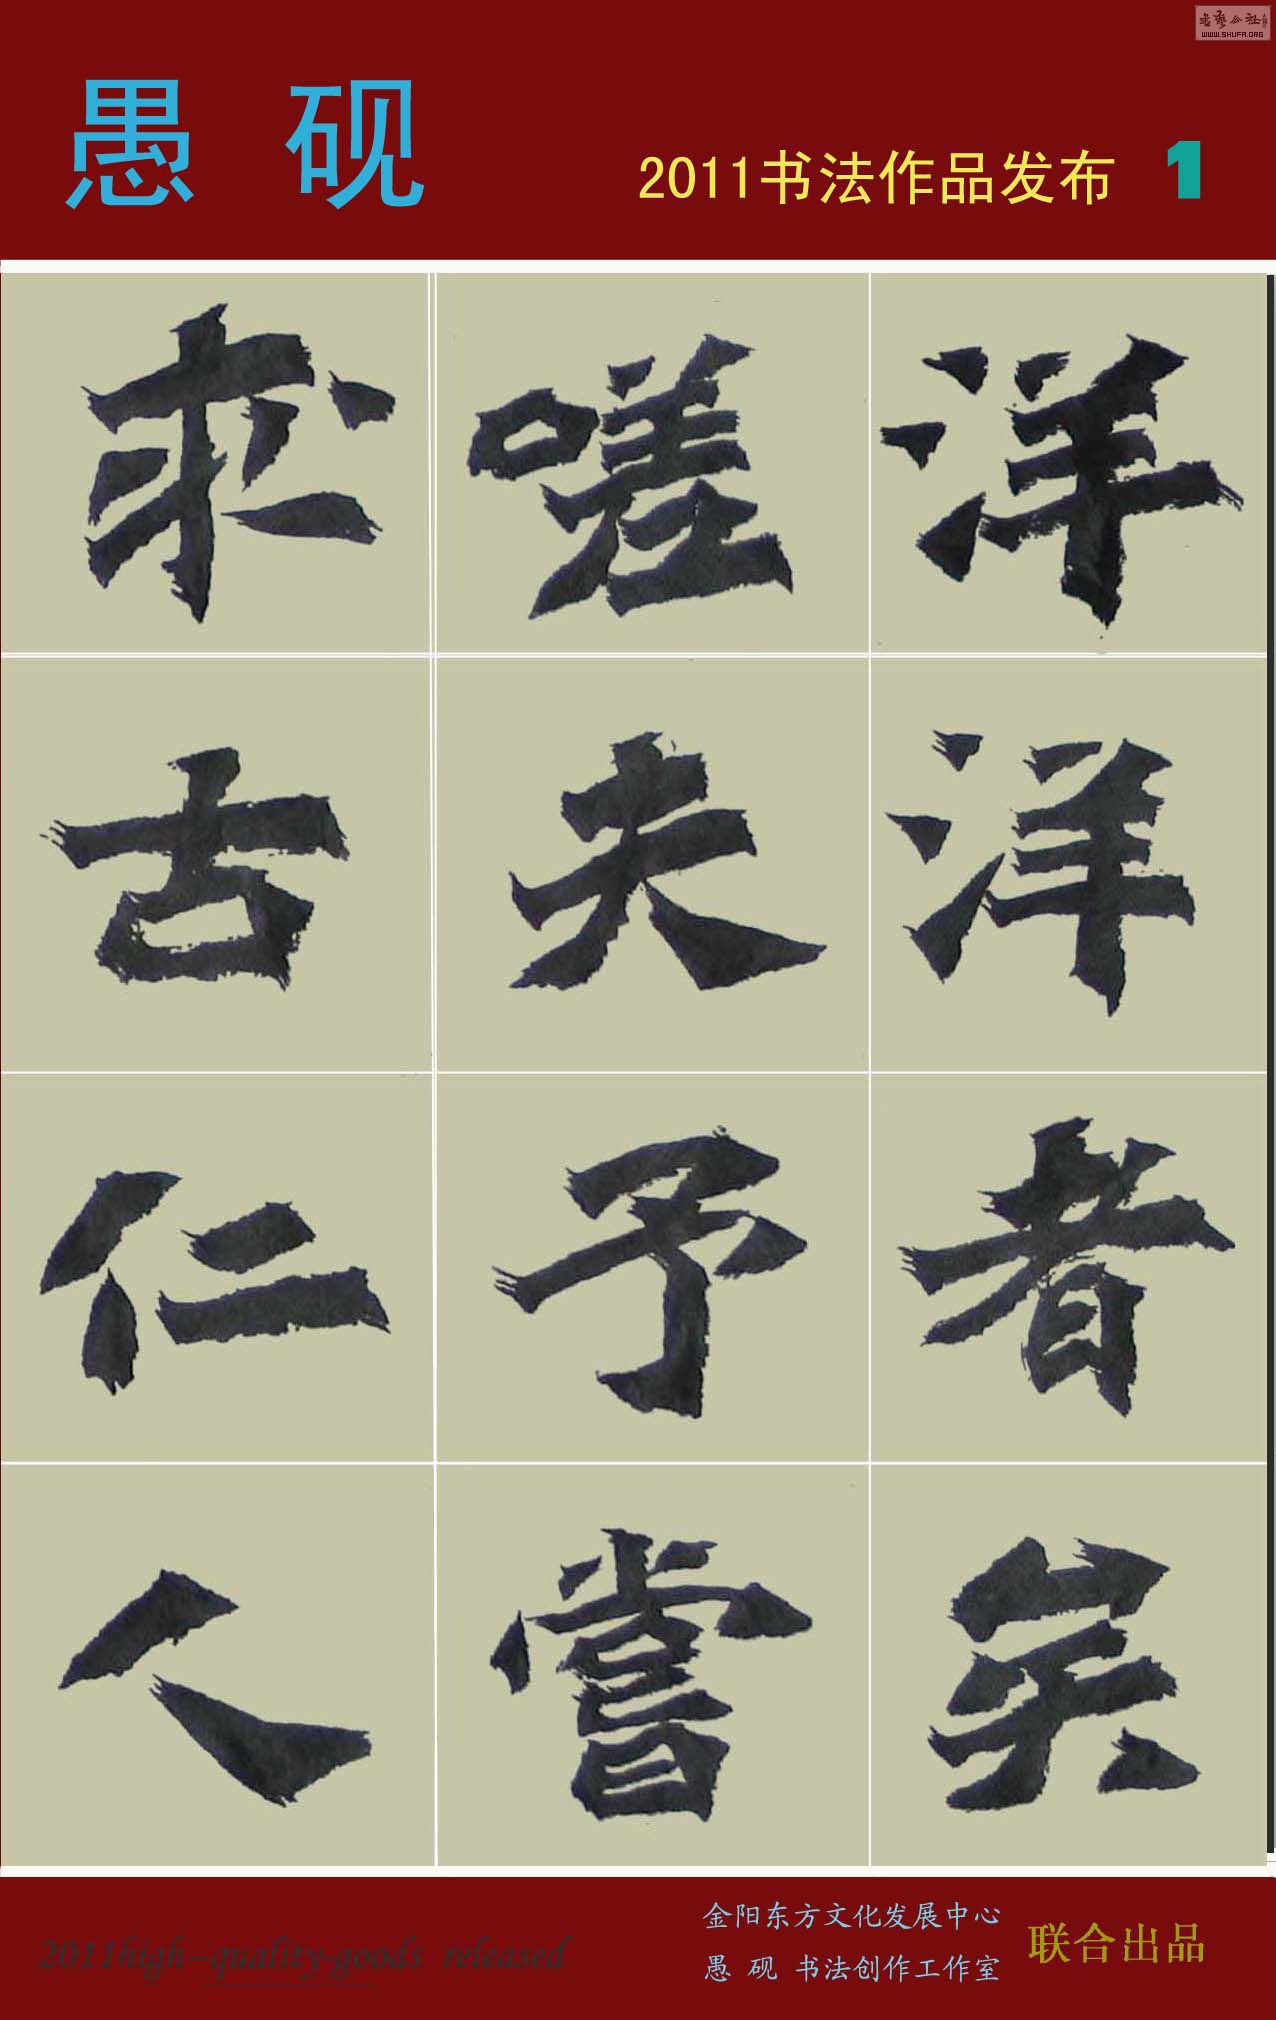 書藝公社
WWW.SHUFA.ORG
愚 砚
2011书法作品发布 1
洋洋者矣
嗟夫予嘗
求古仁人
2011high-quality-goods released
金阳东方文化发展中心
愚 砚 书法创作工作室
联合出品